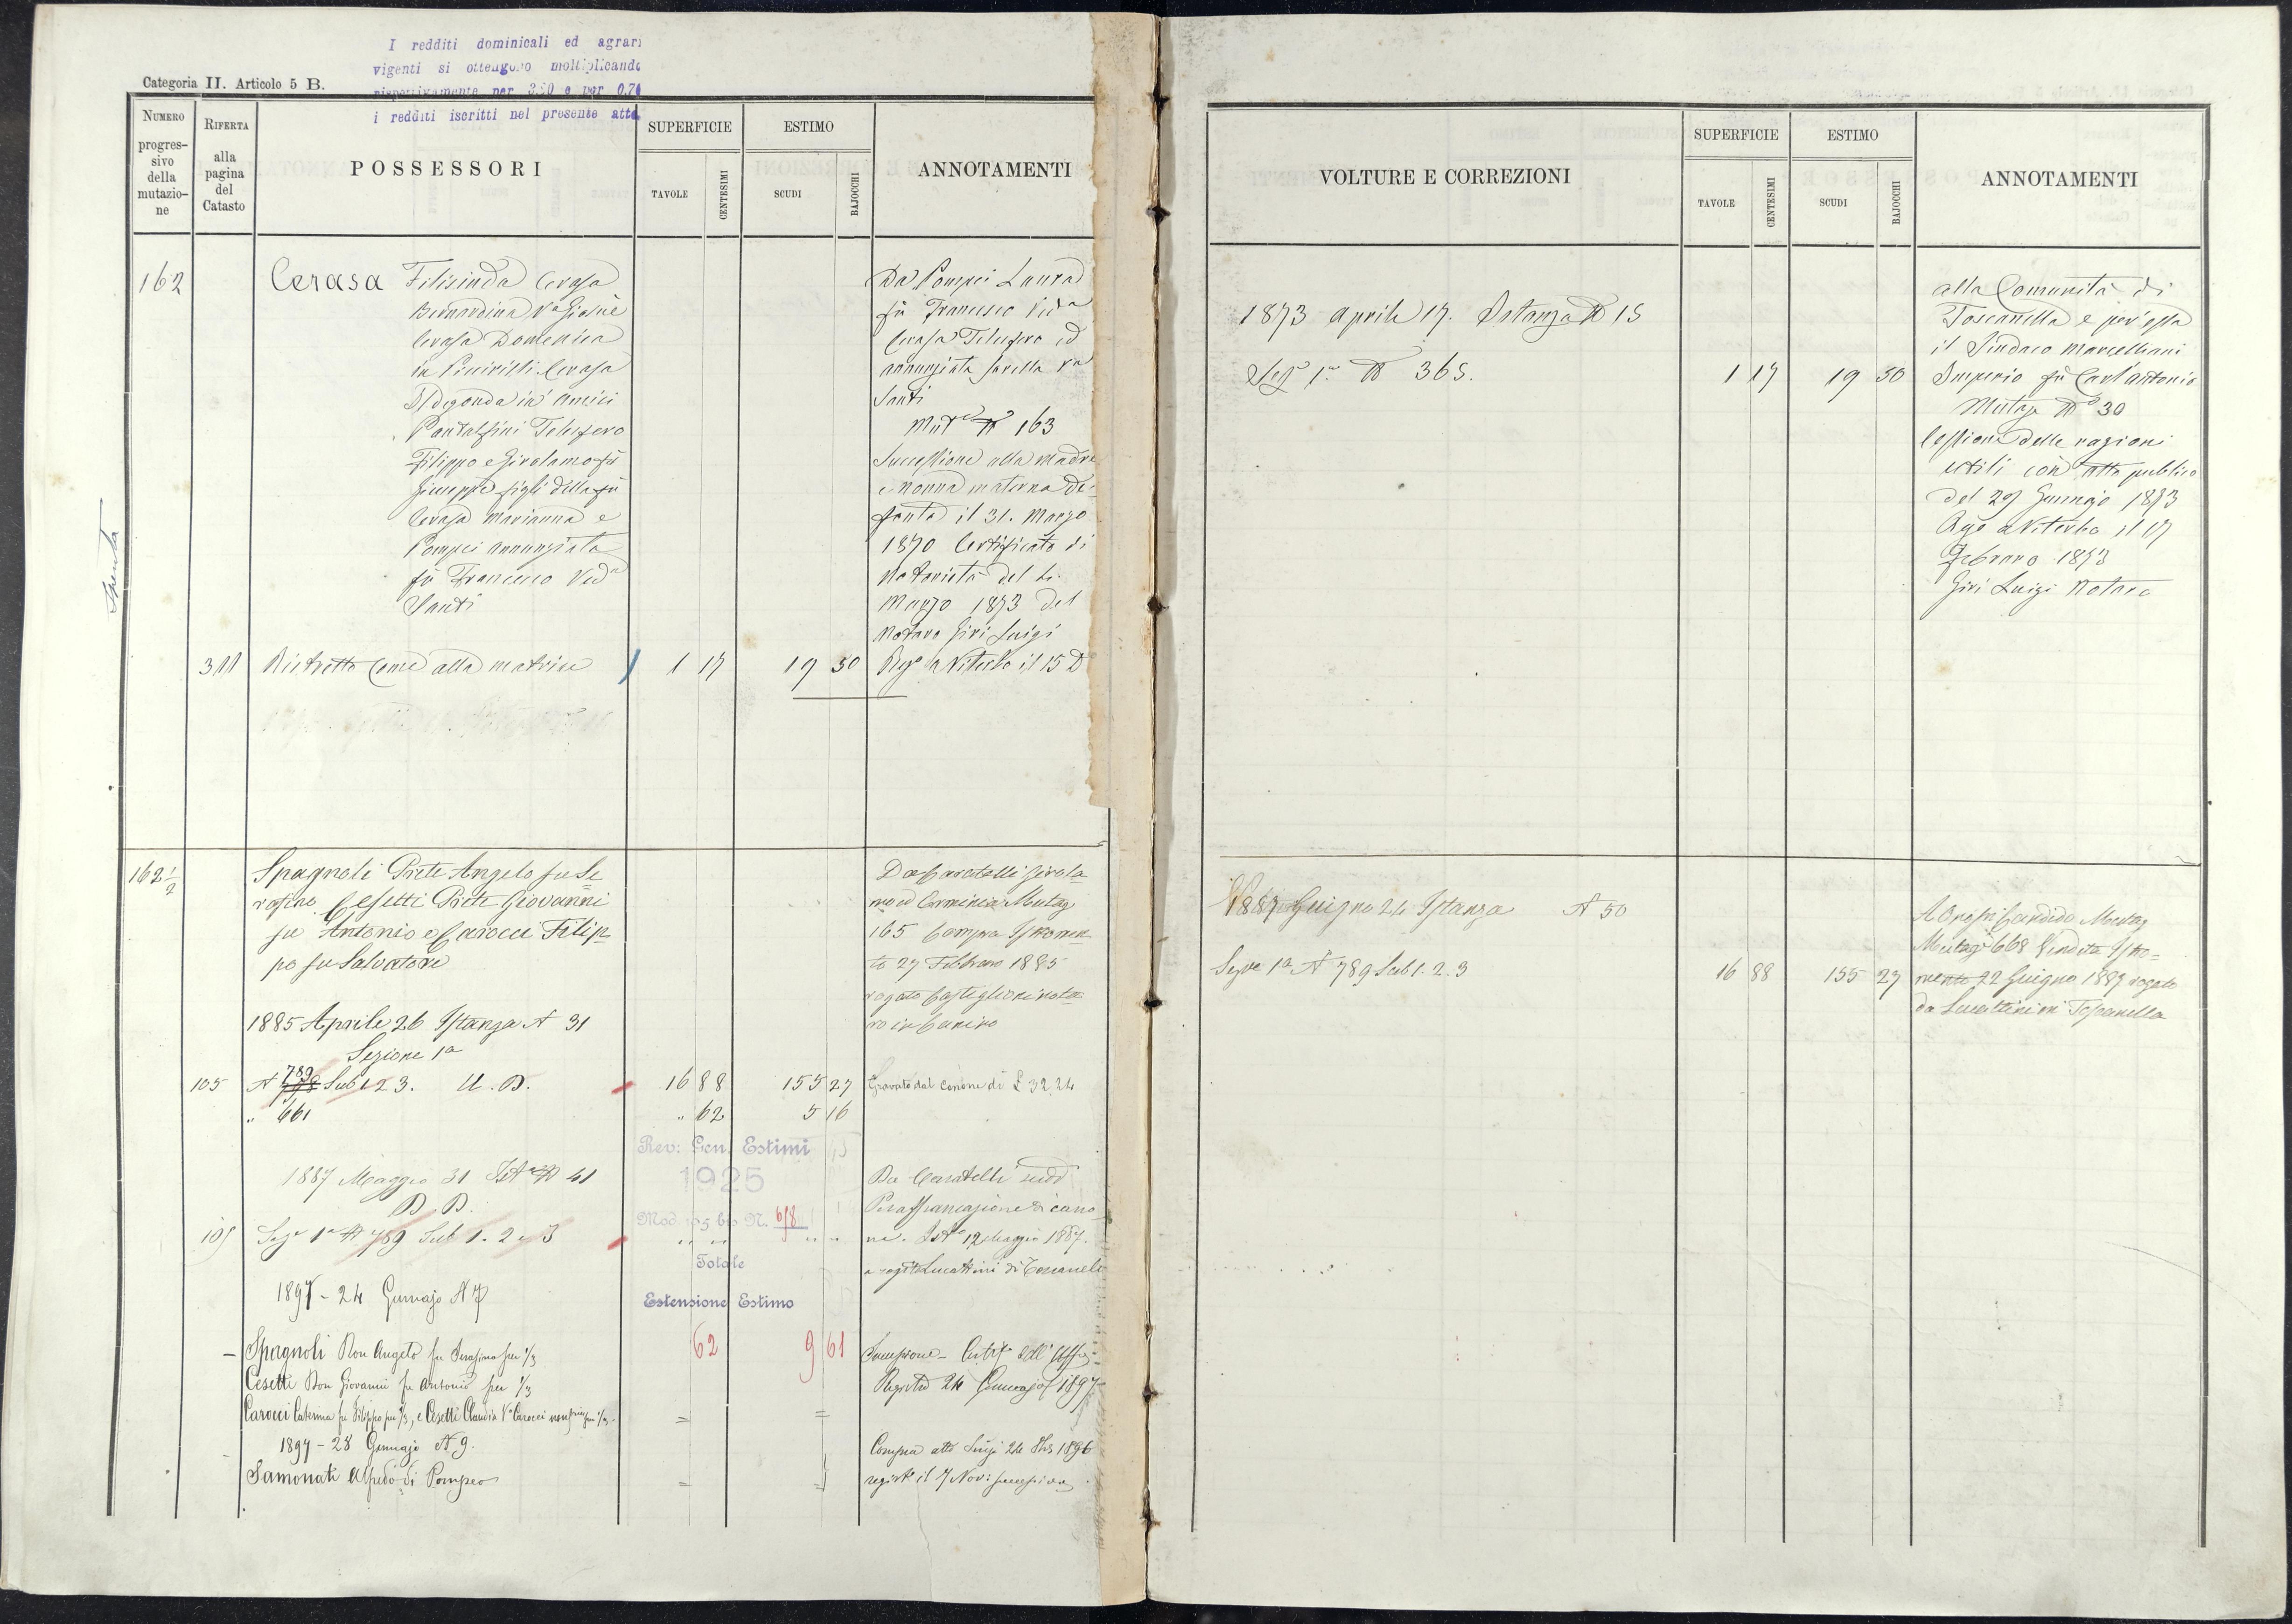 I redditi dominicali ed agrari
vigenti si ottengono moltiplicando
rispettivamente per 3.20 e per 0.70
i redditi iscritti nel presente atto
Categoria II. Articolo 5 B.
NUMERO progres- sivo della mutazio- ne
RIFERTA alla pagina del Catasto
POSSESSORI
SUPERFICIE
TAVOLE
CENTESIMI
ESTIMO
SCUDI
BAJOCCHI
ANNOTAMENTI
Spenta
162
Cerasa Filisinda Cerasa
Bernardina Va Giosuè
Cerasa Domenica
in Cerasa
Ildegonda in Amici
Pantalfini Telesforo
Filippo e Girolamo fù
Giuseppe figli della fù
Cerasa Marianna e
Pompei Annunziata
fù Francesco Veda
Santi
311 Ristretto Come alla matrice 1 17 19 50
Da Pompei Laura
fù Francesco Veda
Cerasa Telesforo ed
Annunziata sorella Va
Santi
Muta N 163
Successione alla madre
e Nonna materna de-
funta il 31. Marzo
1870 Certificato di
Notorietà del
Marzo 1873 del
Notaro Giri Luigi
Rego a Viterbo il 15 Do
162 1/2
Spagnoli Prete Angelo fu Se
rafino Cesetti Prete Giovanni
fu Antonio e Carocci Filip-
po fu Salvatore
1885 Aprile 26 Istanza N 31
Sezione 1a
105 N 789 Sub 1 2 3. U. D. 16 88 155 27
" 661 " 62 5 16
Da Caratelli Girola-
mo ed Erminia Mutaz
165 Compra Istromen-
to 27 Febbraro 1885
rogato Castiglioni nota-
ro in Canino
Gravato dal Canone di £ 32,24
Rev: Gen. Estimi
1925
Mod. 105 bis N. 618
Totale
Estensione Estimo
62 9 61
1887 Maggio 31 Ista N 41
D. D.
105 Seze 1a N. 789 Sub 1. 2 e 3 " " " "
Da Caratelli sudd
Per affrancazione di cano-
ne. Isto 12 Maggio 1887.
a rogito Lucattini di Toscanella
1897 - 24 Gennajo N 7
Spagnoli Don Angelo fu Serafino per 1/3
Cesetti Don Giovanni fu Antonio per 1/3
Carocci Caterina fu Filippo per 1/3, e Cesetti Claudia Va Carocci
Successione - Certif dell' Uffiz-
Registro 24 Gennajo 1897
1897 - 28 Gennajo N 9.
Samonati Alfredo di Pompeo
Compra atto Luigi 24 1896
registo il 7 Nov:
VOLTURE E CORREZIONI
SUPERFICIE
TAVOLE
CENTESIMI
ESTIMO
SCUDI
BAJOCCHI
ANNOTAMENTI
1873 Aprile 17. Istanza N 15
Seze 1a N 365. 1 17 19 50
alla Comunità di
Toscanella e per essa
il Sindaco Marcelliani
Imperio fù Carl'antonio
Mutaz No 30
Cessione delle ragioni
utili con atto pubblico
del 29 Gennajo 1873
Rego a Viterbo il 17
Febraro 1873
Giri Luigi Notaro
1887 Giugno 24 Istanza N 50
Seze 1a N 789 Sub 1. 2. 3 16 88 155 27
A Candido Mutaz
Mutaz 668 Vendita Istro-
mento 22 Giugno 1887 rogato
da Lucattini in Toscanella